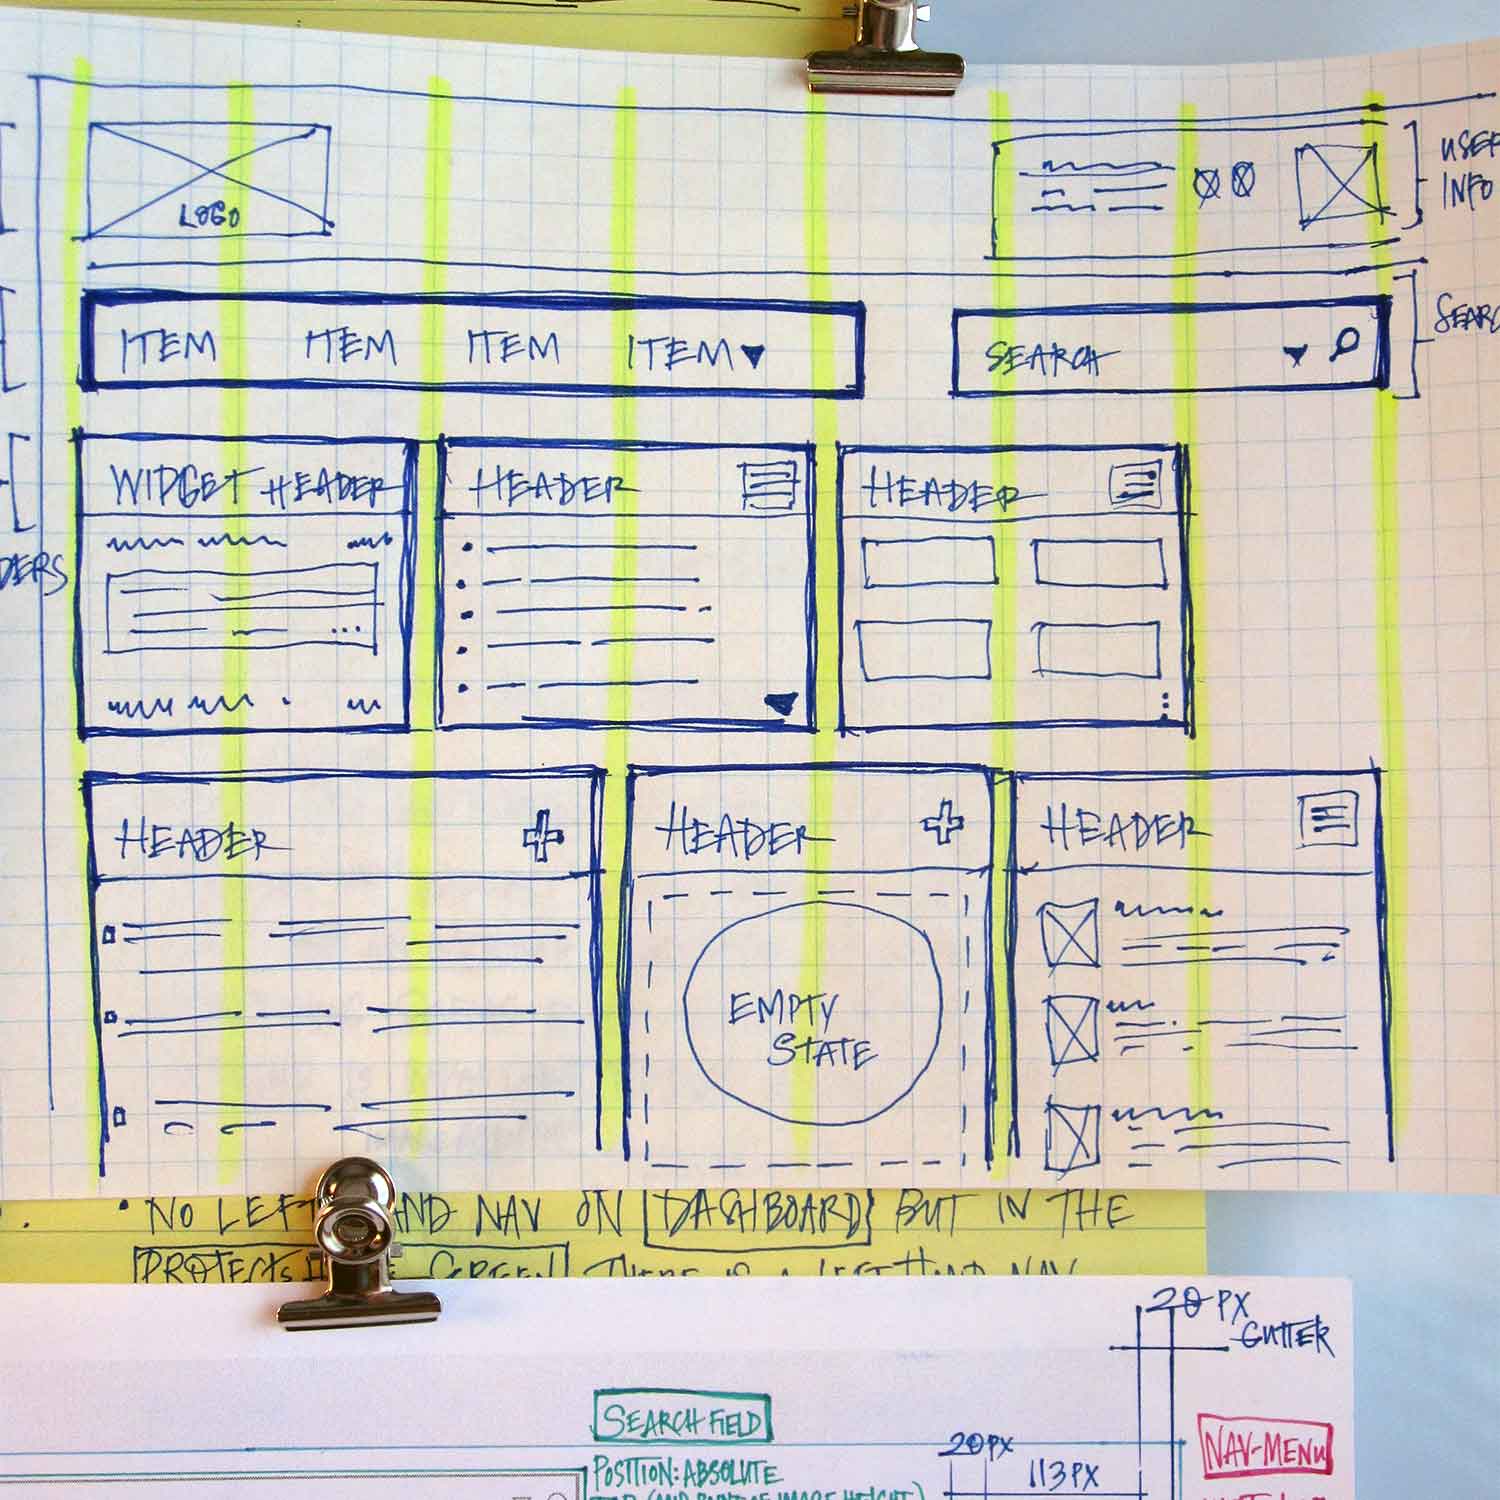 LOGO
USER
INFO
ITEM ITEM ITEM ITEM
SEARCH
WIDGET HEADER
HEADER
HEADER
HEADER
HEADER
HEADER
EMPTY
STATE
• NO LEFT HAND NAV ON DASHBOARD BUT IN THE
SCREEN THERE IS A LEFT HAND NAV
20 PX
GUTTER
SEARCH FIELD
20PX
NAV-MENU
POSITION: ABSOLUTE
113PX
IMAGE HEIGHT)